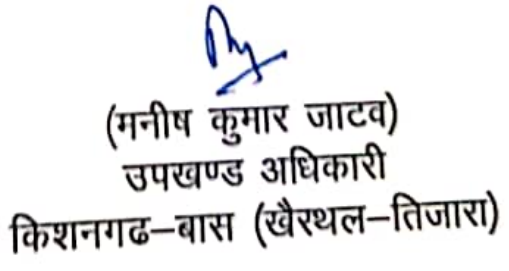 (मनीष कुमार जाटव)
उपखण्ड अधिकारी
किशनगढ–बास (खैरथल–तिजारा)